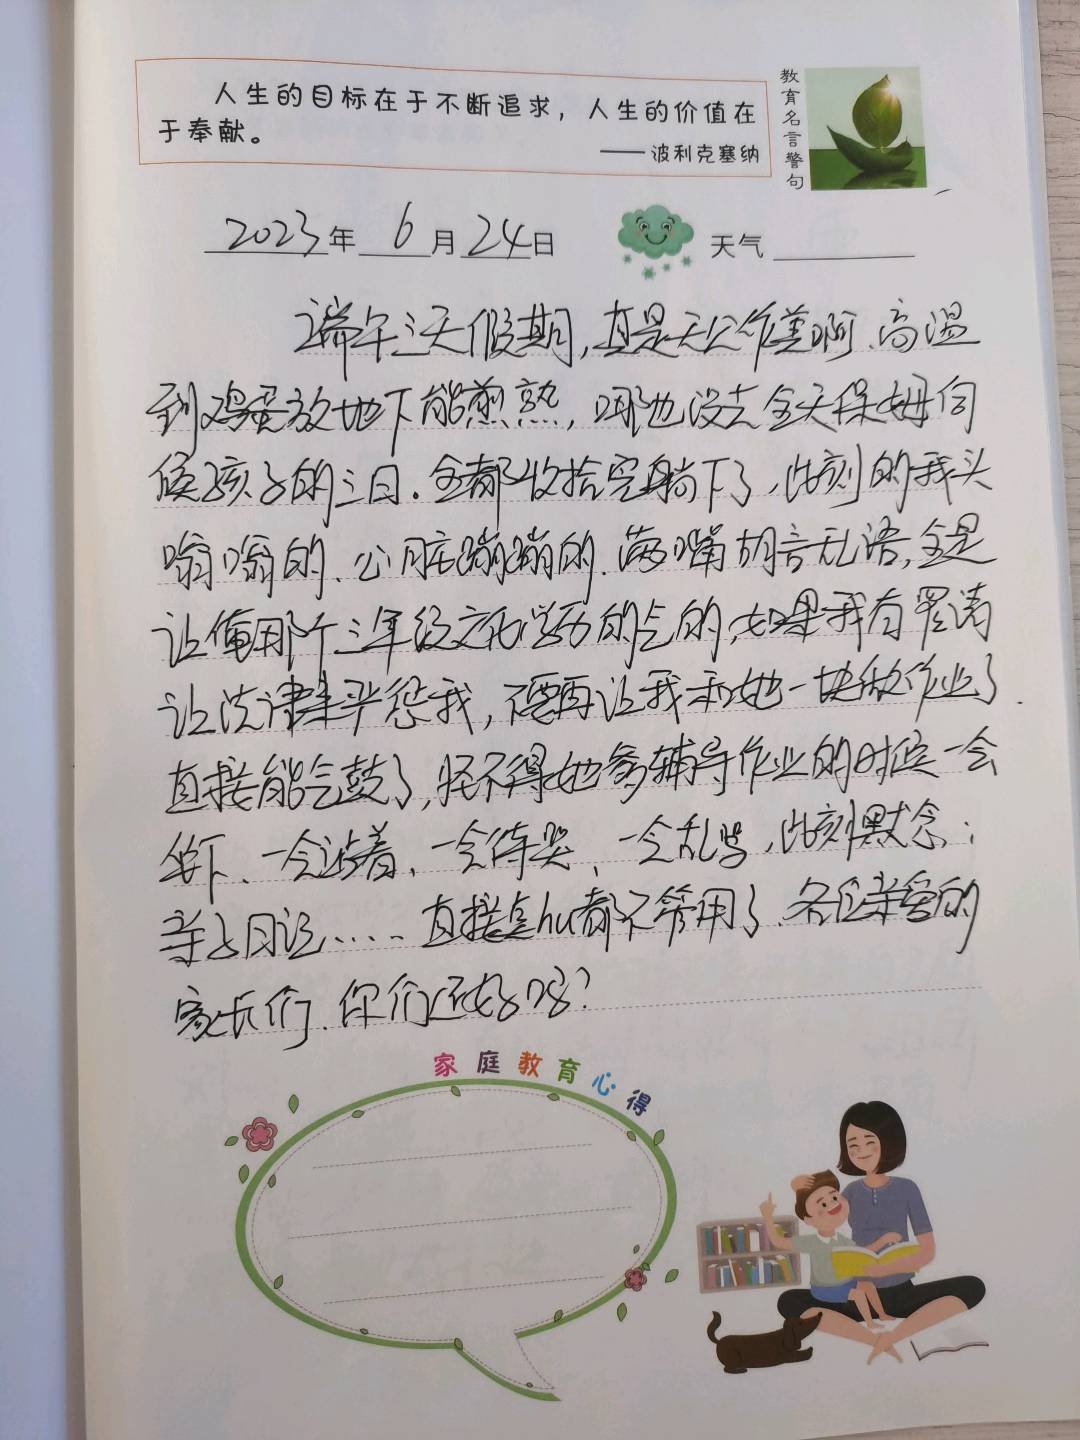 人生的目标在于不断追求，人生的价值在
于奉献。
——波利克塞纳
教育名言警句
2023年 6月24日
天气
端午三天假期,真是天公作美啊、高温
到鸡蛋放地下能煎熟,哪也没去全天保姆伺
候孩子的三日.全都收拾完躺下了,此刻的我头
嗡嗡的、心脏蹦蹦的.满嘴胡言乱语,全是
让俺那个三年级文化学历的气的,如果我有罪请
让法律来平怨我,不要再让我和她一块做作业了.
直接能气鼓了,怪不得她爹辅导作业的时候一会
坐下、一会站着、一会待哭、一会乱骂,此刻默念:
亲子日记..... 直接是hu都不管用了、各位亲爱的
家长们、你们还好吗?
家庭教育心得